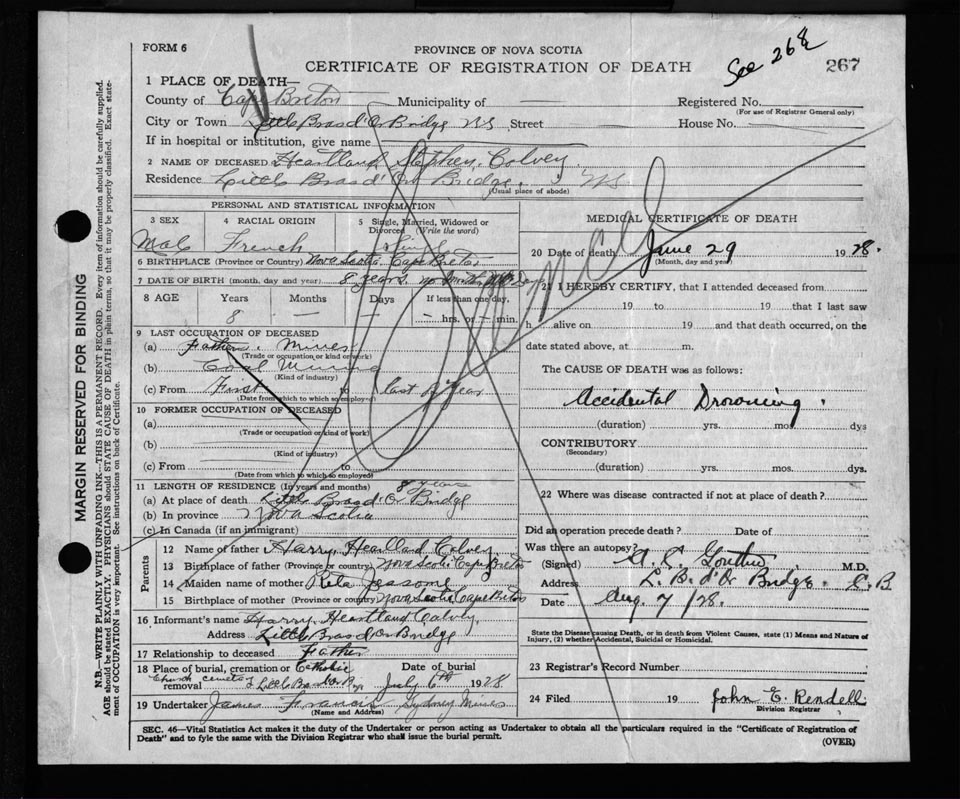 FORM 6
PROVINCE OF NOVA SCOTIA
CERTIFICATE OF REGISTRATION OF DEATH
See 268
267
1 PLACE OF DEATH—
County of Cape Breton Municipality of — Registered No.
(For use of Registrar General only)
City or Town Little Bras d'Or Bridge NS Street — House No. —
If in hospital or institution, give name
2 NAME OF DECEASED Heartland Stephen Calvey
Residence Little Bras d'Or Bridge NS
(Usual place of abode)
PERSONAL AND STATISTICAL INFORMATION
3 SEX 4 RACIAL ORIGIN 5 Single, Married, Widowed or Divorced (Write the word)
Male French Single
6 BIRTHPLACE (Province or Country) Nova Scotia Cape Breton
7 DATE OF BIRTH (month, day and year) 8 years no months
8 AGE Years Months Days If less than one day,
8 — — — hrs. or — min.
9 LAST OCCUPATION OF DECEASED
(a) Father. Miner
(Trade or occupation or kind of work)
(b) Coal Mining
(Kind of industry)
(c) From First to last of year
(Date from which to which so employed)
10 FORMER OCCUPATION OF DECEASED
(a)
(Trade or occupation or kind of work)
(b)
(Kind of industry)
(c) From to
(Date from which to which so employed)
11 LENGTH OF RESIDENCE (In years and months) 8 years
(a) At place of death Little Bras d'Or Bridge
(b) In province Nova Scotia
(c) In Canada (if an immigrant)
Parents
12 Name of father Harry Heartland Calvey
13 Birthplace of father (Province or country) Nova Scotia Cape Breton
14 Maiden name of mother Rita Jessome
15 Birthplace of mother (Province or country) Nova Scotia, Cape Breton
16 Informant's name Harry Heartland Calvey
Address Little Bras d'Or Bridge
17 Relationship to deceased Father
18 Place of burial, cremation or removal Catholic Church cemetery Little Bras d'Or Date of burial July 6th 1928
19 Undertaker James Francis Sydney Mines
(Name and Address)
MEDICAL CERTIFICATE OF DEATH
20 Date of death June 29 1928.
(Month, day and year)
21 I HEREBY CERTIFY, that I attended deceased from
19 to 19 that I last saw
h alive on 19 and that death occurred, on the
date stated above, at m.
The CAUSE OF DEATH was as follows:
Accidental Drowning.
(duration) yrs. mos. dys
CONTRIBUTORY
(Secondary)
(duration) yrs. mos. dys.
22 Where was disease contracted if not at place of death?
Did an operation precede death? Date of
Was there an autopsy?
(Signed) M.D.
Address L. B. d'Or Bridge. C.B
Date Aug. 7/28.
State the Disease causing Death, or in death from Violent Causes, state (1) Means and Nature of
Injury, (2) whether Accidental, Suicidal or Homicidal.
23 Registrar's Record Number
24 Filed 19 John E. Rendell
Division Registrar
SEC. 46—Vital Statistics Act makes it the duty of the Undertaker or person acting as Undertaker to obtain all the particulars required in the "Certificate of Registration of
Death" and to fyle the same with the Division Registrar who shall issue the burial permit.
(OVER)
Cancelled
MARGIN RESERVED FOR BINDING
N.B.—WRITE PLAINLY WITH UNFADING INK—THIS IS A PERMANENT RECORD. Every item of information should be carefully supplied.
AGE should be stated EXACTLY. PHYSICIANS should STATE CAUSE OF DEATH in plain terms, so that it may be properly classified. Exact statement of OCCUPATION is very important. See instructions on back of Certificate.